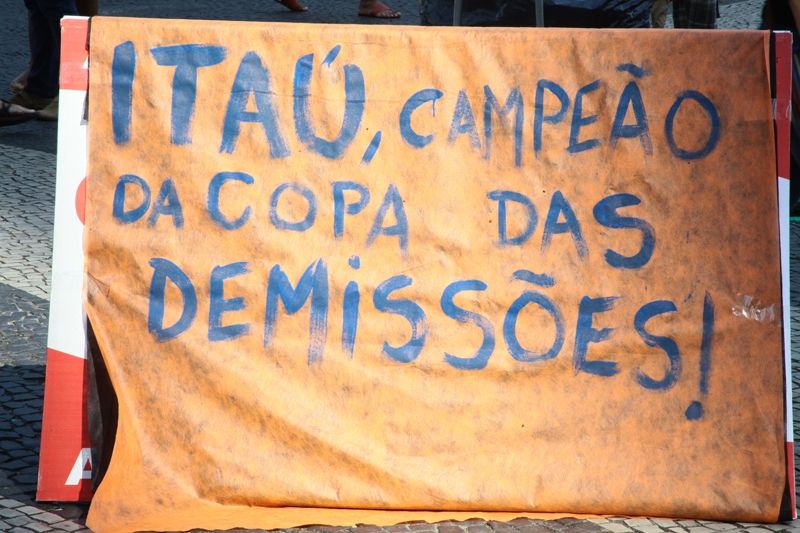 ITAÚ, CAMPEÃO
DA COPA DAS
DEMISSÕES!
A